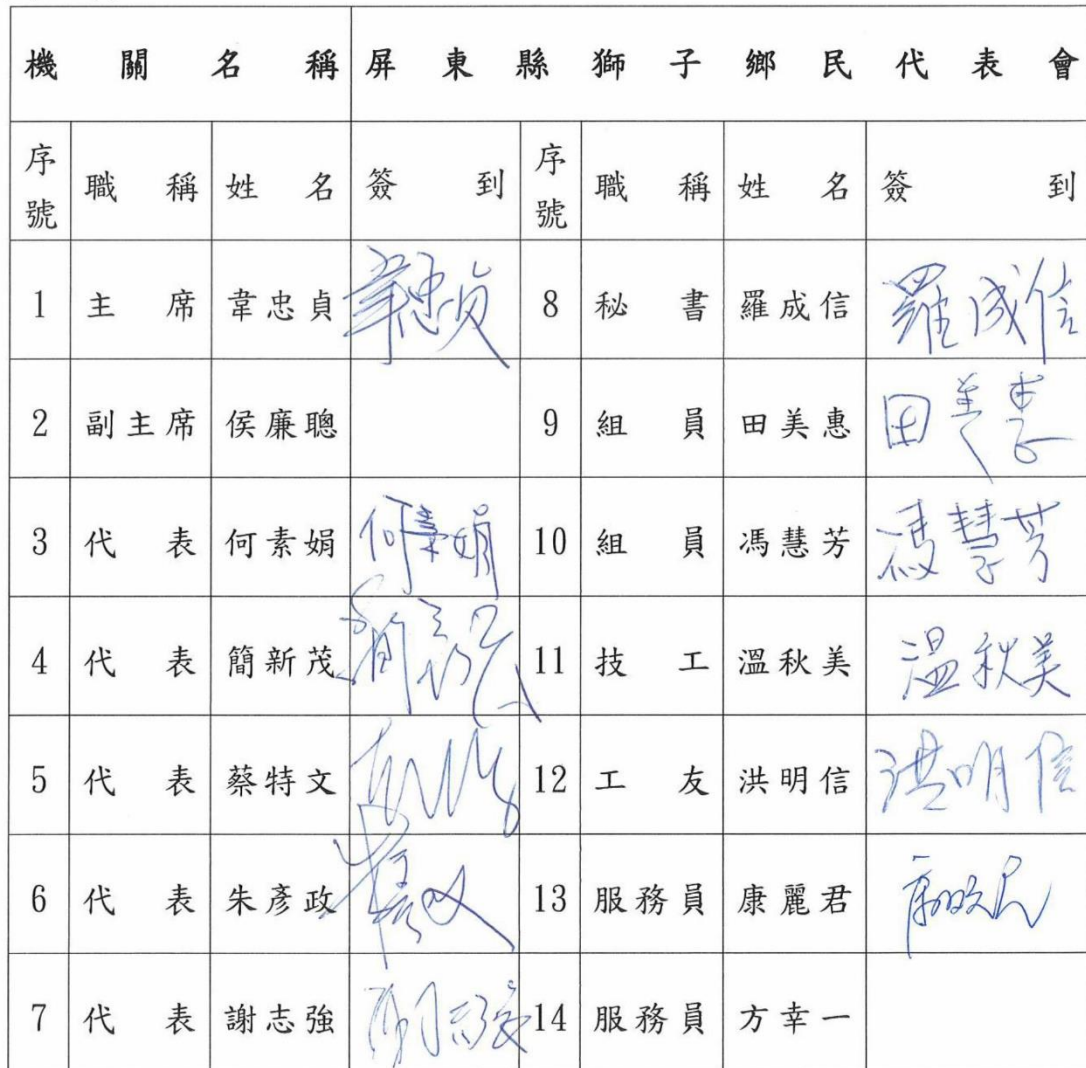 機關名稱 屏東縣獅子鄉民代表會
序號 職稱 姓名 簽到 序號 職稱 姓名 簽到
1 主席 韋忠貞 韋忠貞 8 秘書 羅成信 羅成信
2 副主席 侯廉聰 9 組員 田美惠 田美惠
3 代表 何素娟 何素娟 10 組員 馮慧芳 馮慧芳
4 代表 簡新茂 11 技工 溫秋美 温秋美
5 代表 蔡特文 12 工友 洪明信 洪明信
6 代表 朱彥政 13 服務員 康麗君
7 代表 謝志強 14 服務員 方幸一